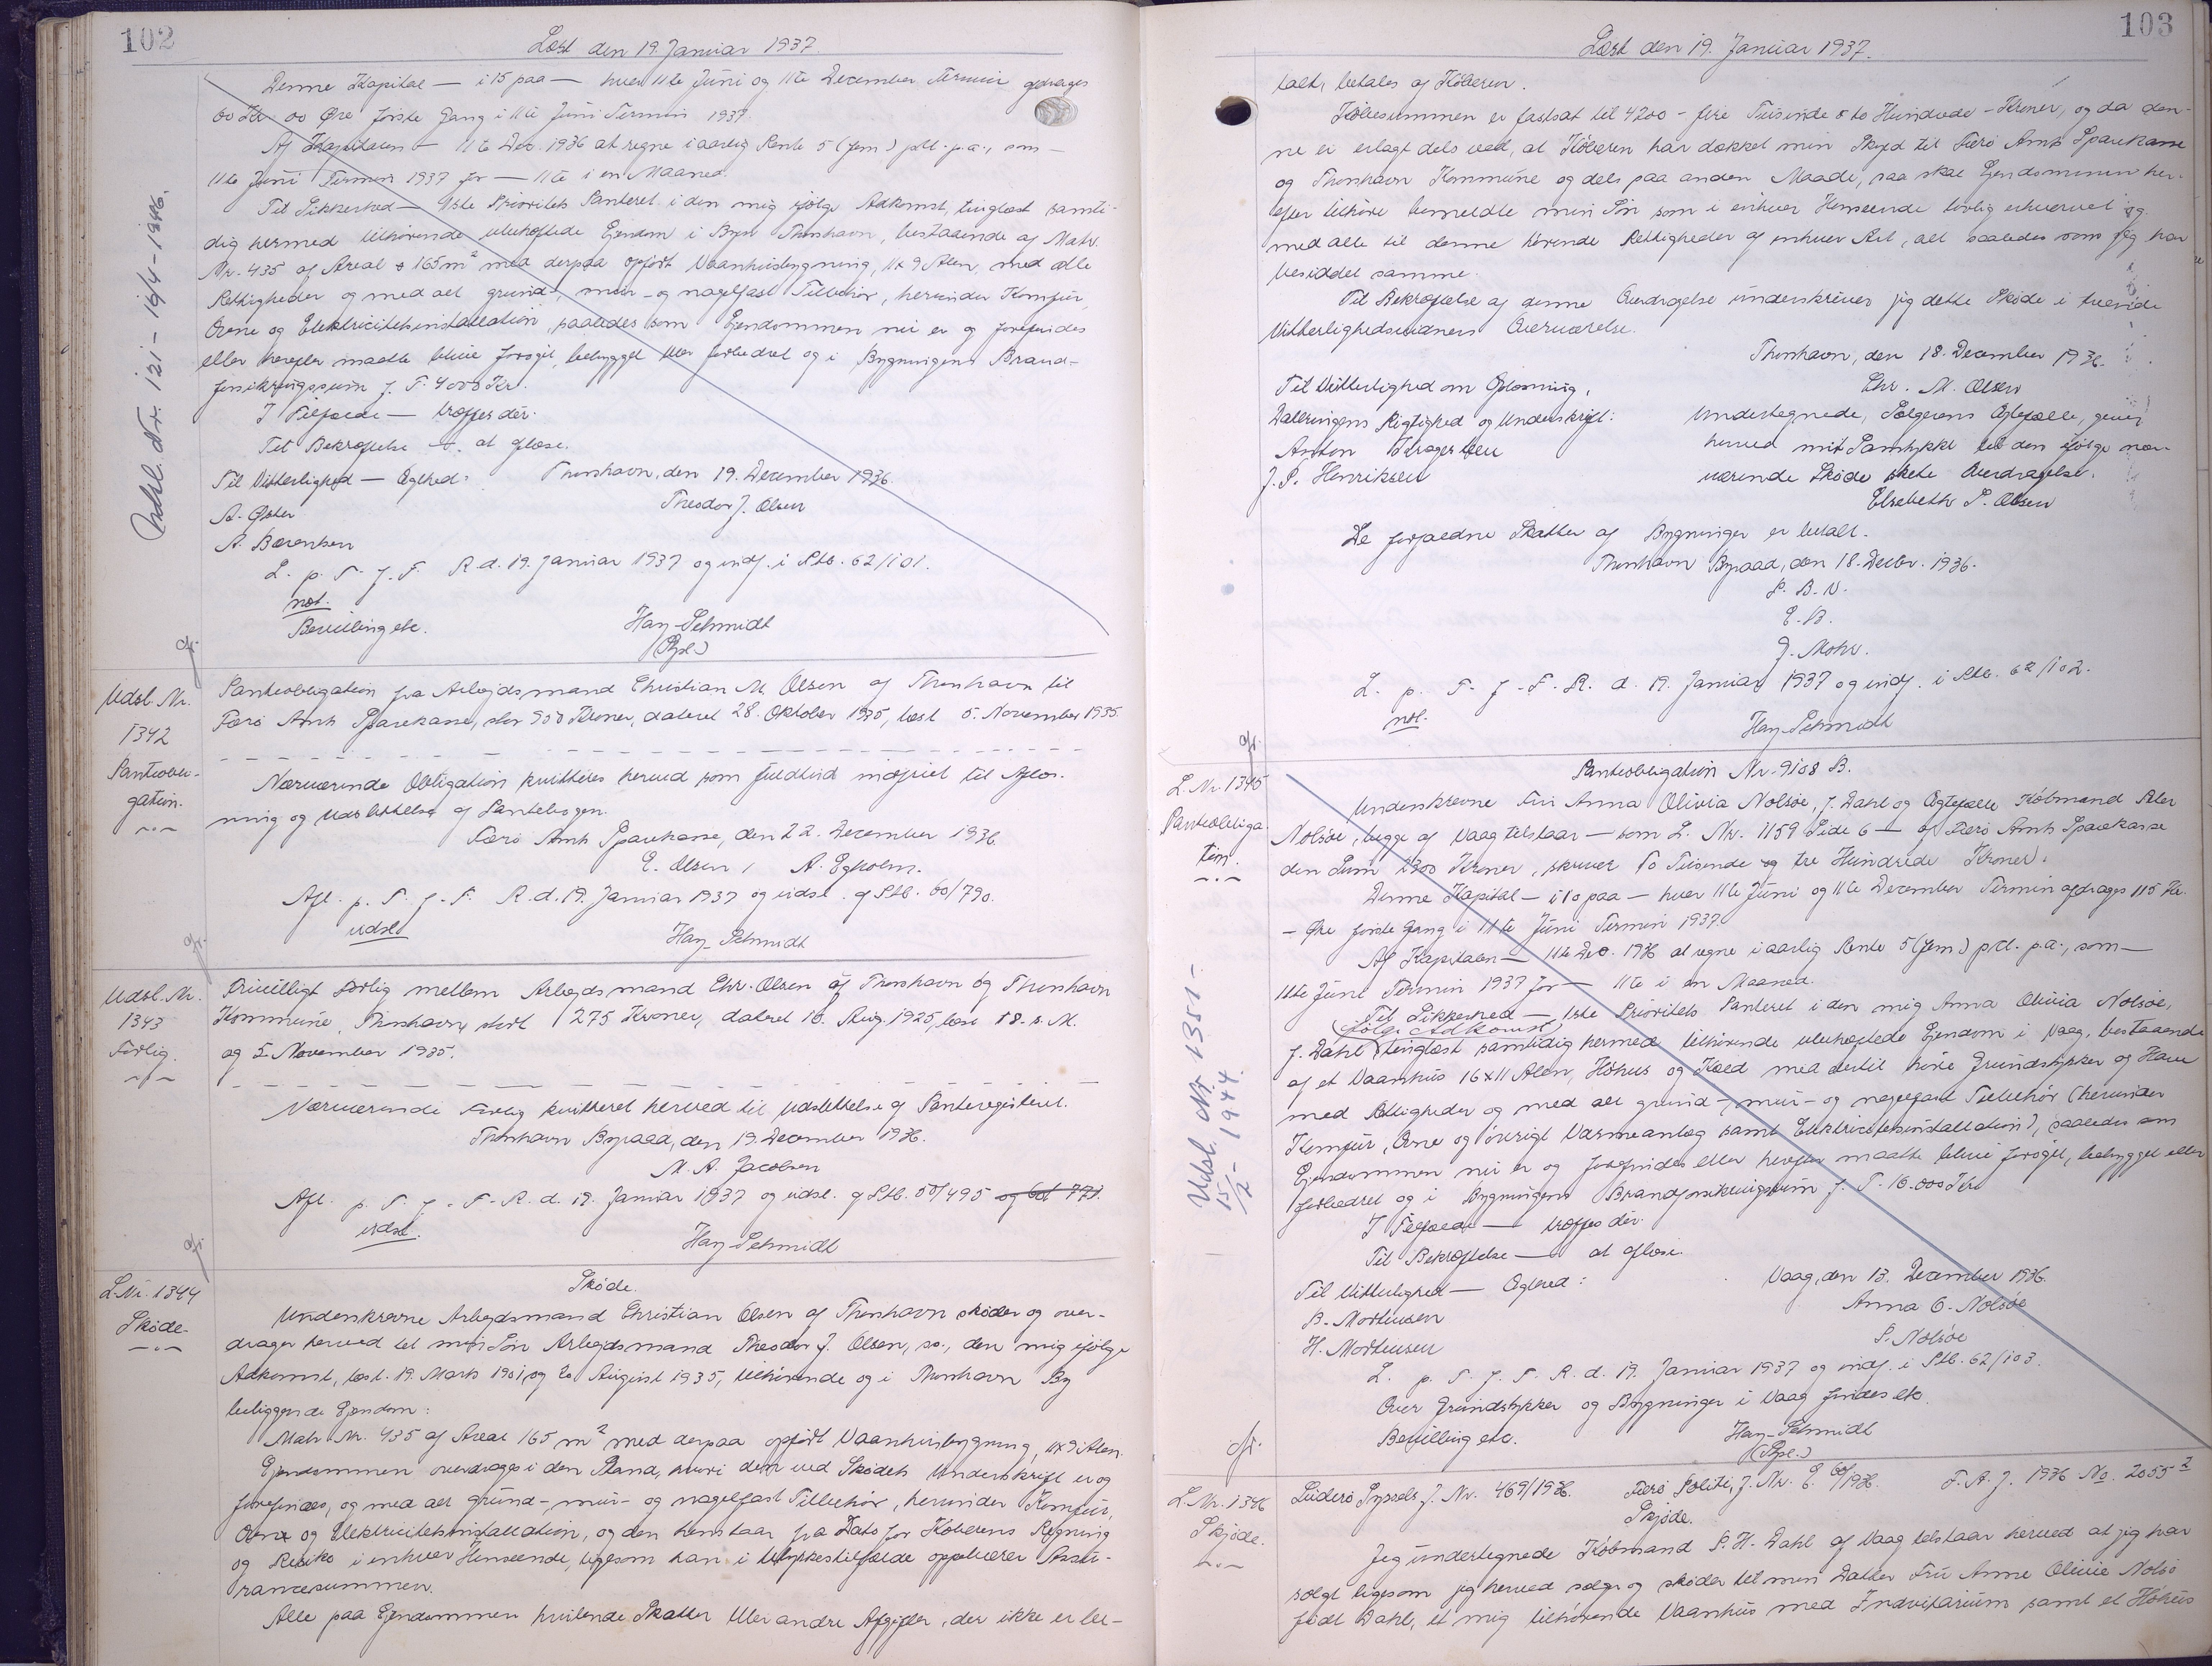 102
Læst den 19. Januar 1937.
Denne Kapital — i 15 paa — hver 11te Juni og 11te December Termin afdrages
00 Kr. 00 Øre første Gang i 11te Juni Termin 1937.
Af Kapitalen — 11te Dec. 1936 at regne i aarlig Rente 5 (fem) pCt. p.a., som —
11te Juni Termin 1937 for — 11te i en Maaned.
Til Sikkerhed — 1ste Prioritets Panteret i den mig ifølge Adkomst, tinglæst samti-
dig hermed tilhørende ubehæftede Ejendom i Byen Thorshavn, bestaaende af Matr.
Nr. 435 af Areal 165 m² med derpaa opført Vaaninghusbygning, 11 x 9 Alen, med alle
Rettigheder og med alt grund-, mur- og nagelfast Tilbehør, herunder Komfur,
Ovne og Elektricitetsinstallation, saaledes som Ejendommen nu er og forefindes
eller herefter maatte blive forøget, bebygget eller forbedret og i Bygningens Brand-
forsikringssum f. T. 4000 Kr.
I Tilfælde — træffes dér.
Til Bekræftelse — at aflæse.
Til Vitterlighed — Ægthed: Thorshavn, den 19. December 1936.
A. Øster Theodor J. Olsen
A. Bærentsen
L. p. T. f. F. R. d. 19. Januar 1937 og indf. i Ptb. 62/101.
not.
Bevilling etc. Hay-Schmidt
(Rpl.)
Udsl. Nr. 121 - 16/4 - 1946.
Udsl. Nr.
1342
Panteobli-
gation.
Panteobligation fra Arbejdsmand Christian M. Olsen af Thorshavn til
Færø Amts Sparekasse, stor 900 Kroner, dateret 28. Oktober 1935, læst 5. November 1935.
Nærværende Obligation kvitteres herved som fuldtud indfriet til Aflæs-
ning og Udslettelse af Pantebogen.
Færø Amts Sparekasse, den 22. December 1936.
E. Olsen / A. Egholm.
Afl. p. T. f. F. R. d. 19. Januar 1937 og udsl. af Ptb. 60/790.
udsl.
Hay-Schmidt
Udsl. Nr.
1343
Forlig.
Frivilligt Forlig mellem Arbejdsmand Chr. Olsen af Thorshavn og Thorshavn
Kommune, Thorshavn, stort 1275 Kroner, dateret 10. Aug. 1925, læst 18. s. M.
og 5. November 1935.
Nærværende Forlig kvitteret herved til Udslettelse af Panteregisteret.
Thorshavn Byraad, den 19. December 1936.
M. A. Jacobsen
Afl. p. T. f. F. R. d. 19. Januar 1937 og udsl. af Ptb. 50/495
udsl.
Hay-Schmidt
L. Nr. 1344
Skøde.
Skøde.
Underskrevne Arbejdsmand Christian Olsen af Thorshavn skøder og over-
drager herved til min Søn Arbejdsmand Theodor J. Olsen, sst., den mig ifølge
Adkomst, læst 19. Marts 1901 og 20 August 1935, tilhørende og i Thorshavn By
beliggende Ejendom:
Matr. Nr. 435 af Areal 165 m² med derpaa opført Vaaninghusbygning, 11x9 Alen.
Ejendommen overdrages i den Stand, hvori den ved Skødets Underskrift er og
forefindes, og med alt grund-, mur- og nagelfast Tilbehør, herunder Komfur,
Ovne og Elektricitetsinstallation, og den henstaar fra Dato for Køberens Regning
og Risiko i enhver Henseende, ligesom han i Ulykkestilfælde oppebærer Assu-
rancesummen.
Alle paa Ejendommen hvilende Skatter eller andre Afgifter, der ikke er be-
103
Læst den 19. Januar 1937.
talt, betales af Køberen.
Købesummen er fastsat til 4200 - fire Tusinde & to Hundrede - Kroner, og da den-
ne er erlagt dels ved, at Køberen har dækket min Skyld til Færø Amts Sparekasse
og Thorshavn Kommune og dels paa anden Maade, saa skal Ejendommen her-
efter tilhøre bemeldte min Søn som i enhver Henseende lovlig erhvervet og
med alle til denne hørende Rettigheder af enhver Art, alt saaledes som jeg har
besiddet samme.
Til Bekræftelse af denne Overdragelse underskriver jeg dette Skøde i tvende
Vitterlighedsvidners Overværelse.
Thorshavn, den 18. December 1936.
Til Vitterlighed om Oplæsning, Chr. M. Olsen
Dateringens Rigtighed og Underskrift: Undertegnede, Sælgerens Ægtefælle, giver
Anton herved mit Samtykke til den ifølge nær-
J. P. Henriksen værende Skøde skete Overdragelse.
Elsebeth S. Olsen
De forfaldne Skatter af Bygninger er betalt.
Thorshavn Byraad, den 18. Decbr. 1936.
P. B. V.
E. B.
J. Mohr.
L. p. T. f. F. R. d. 19. Januar 1937 og indf. i Ptb. 62/102.
not.
Hay-Schmidt
L. Nr. 1345
Panteobliga-
tion.
Panteobligation Nr. 9108 B.
Underskrevne Fru Anna Olivia Nolsøe, f. Dahl og Ægtefælle Købmand Peter
Nolsøe, begge af Vaag tilstaar — som L. Nr. 1159 Side 6 — af Færø Amts Sparekasse
den Sum 2300 Kroner, skriver To Tusende og tre Hundrede Kroner.
Denne Kapital — i 10 paa — hver 11te Juni og 11te December Termin afdrages 115 Kr.
- Øre første Gang i 11te Juni Termin 1937.
Af Kapitalen — 11te Dec. 1936 at regne i aarlig Rente 5 (fem) pCt. p.a., som —
11te Juni Termin 1937 for — 11te i en Maaned.
Til Sikkerhed — 1ste Prioritets Panteret i den mig Anna Olivia Nolsøe,
(ifølge Adkomst)
f. Dahl tinglæst samtidig hermed tilhørende ubehæftede Ejendom i Vaag, bestaaende
af et Vaanhus 16x11 Alen, Høhus og Kæld med dertil hørende Grundstykker og Have
med Rettigheder og med alt grund-, mur- og nagelfast Tilbehør (herunder
Komfur, Ovne og øvrigt Varmeanlæg samt Elektricitetsinstallation), saaledes som
Ejendommen nu er og forefindes eller herefter maatte blive forøget, bebygget eller
forbedret og i Bygningens Brandforsikringssum f. T. 16.000 Kr.
I Tilfælde — træffes dér.
Til Bekræftelse — at aflæse.
Til Vitterlighed — Ægthed: Vaag, den 13. December 1936.
B. Mortensen Anna O. Nolsøe
H. Mortensen P. Nolsøe
L. p. T. f. F. R. d. 19. Januar 1937 og indf. i Ptb. 62/103.
Over Grundstykker og Bygninger i Vaag findes etc.
Bevilling etc. Hay-Schmidt
(Rpl.)
Udsl. Nr. 1351 -
15/2 - 1944.
L. Nr. 1346
Skjøde.
Suderø Syssels J. Nr. 469/1936. Færø Politi, J. Nr. E. 60/1936. F. A. J. 1936 No. 2055
Skjøde.
Jeg undertegnede Købmand P. H. Dahl af Vaag tilstaar herved at jeg har
solgt ligesom jeg herved sælger og skøder til min Datter Fru Anne Olivie Nolsø
født Dahl, et mig tilhørende Vaanhus med Indvitarium samt et Høhus